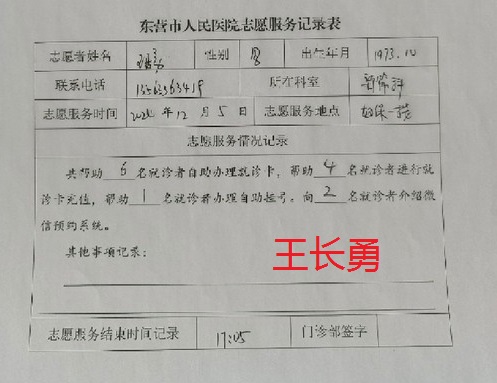 东营市人民医院志愿服务记录表
志愿者姓名 性别 男 出生年月 1973.10
联系电话 所在科室
志愿服务时间 年12月5日 志愿服务地点
志愿服务情况记录
共帮助6名就诊者自助办理就诊卡，帮助4名就诊者进行就
诊卡充值，帮助1名就诊者办理自助挂号，向2名就诊者介绍微
信预约系统。
其他事项记录：
王长勇
志愿服务结束时间记录 17:05 门诊部签字